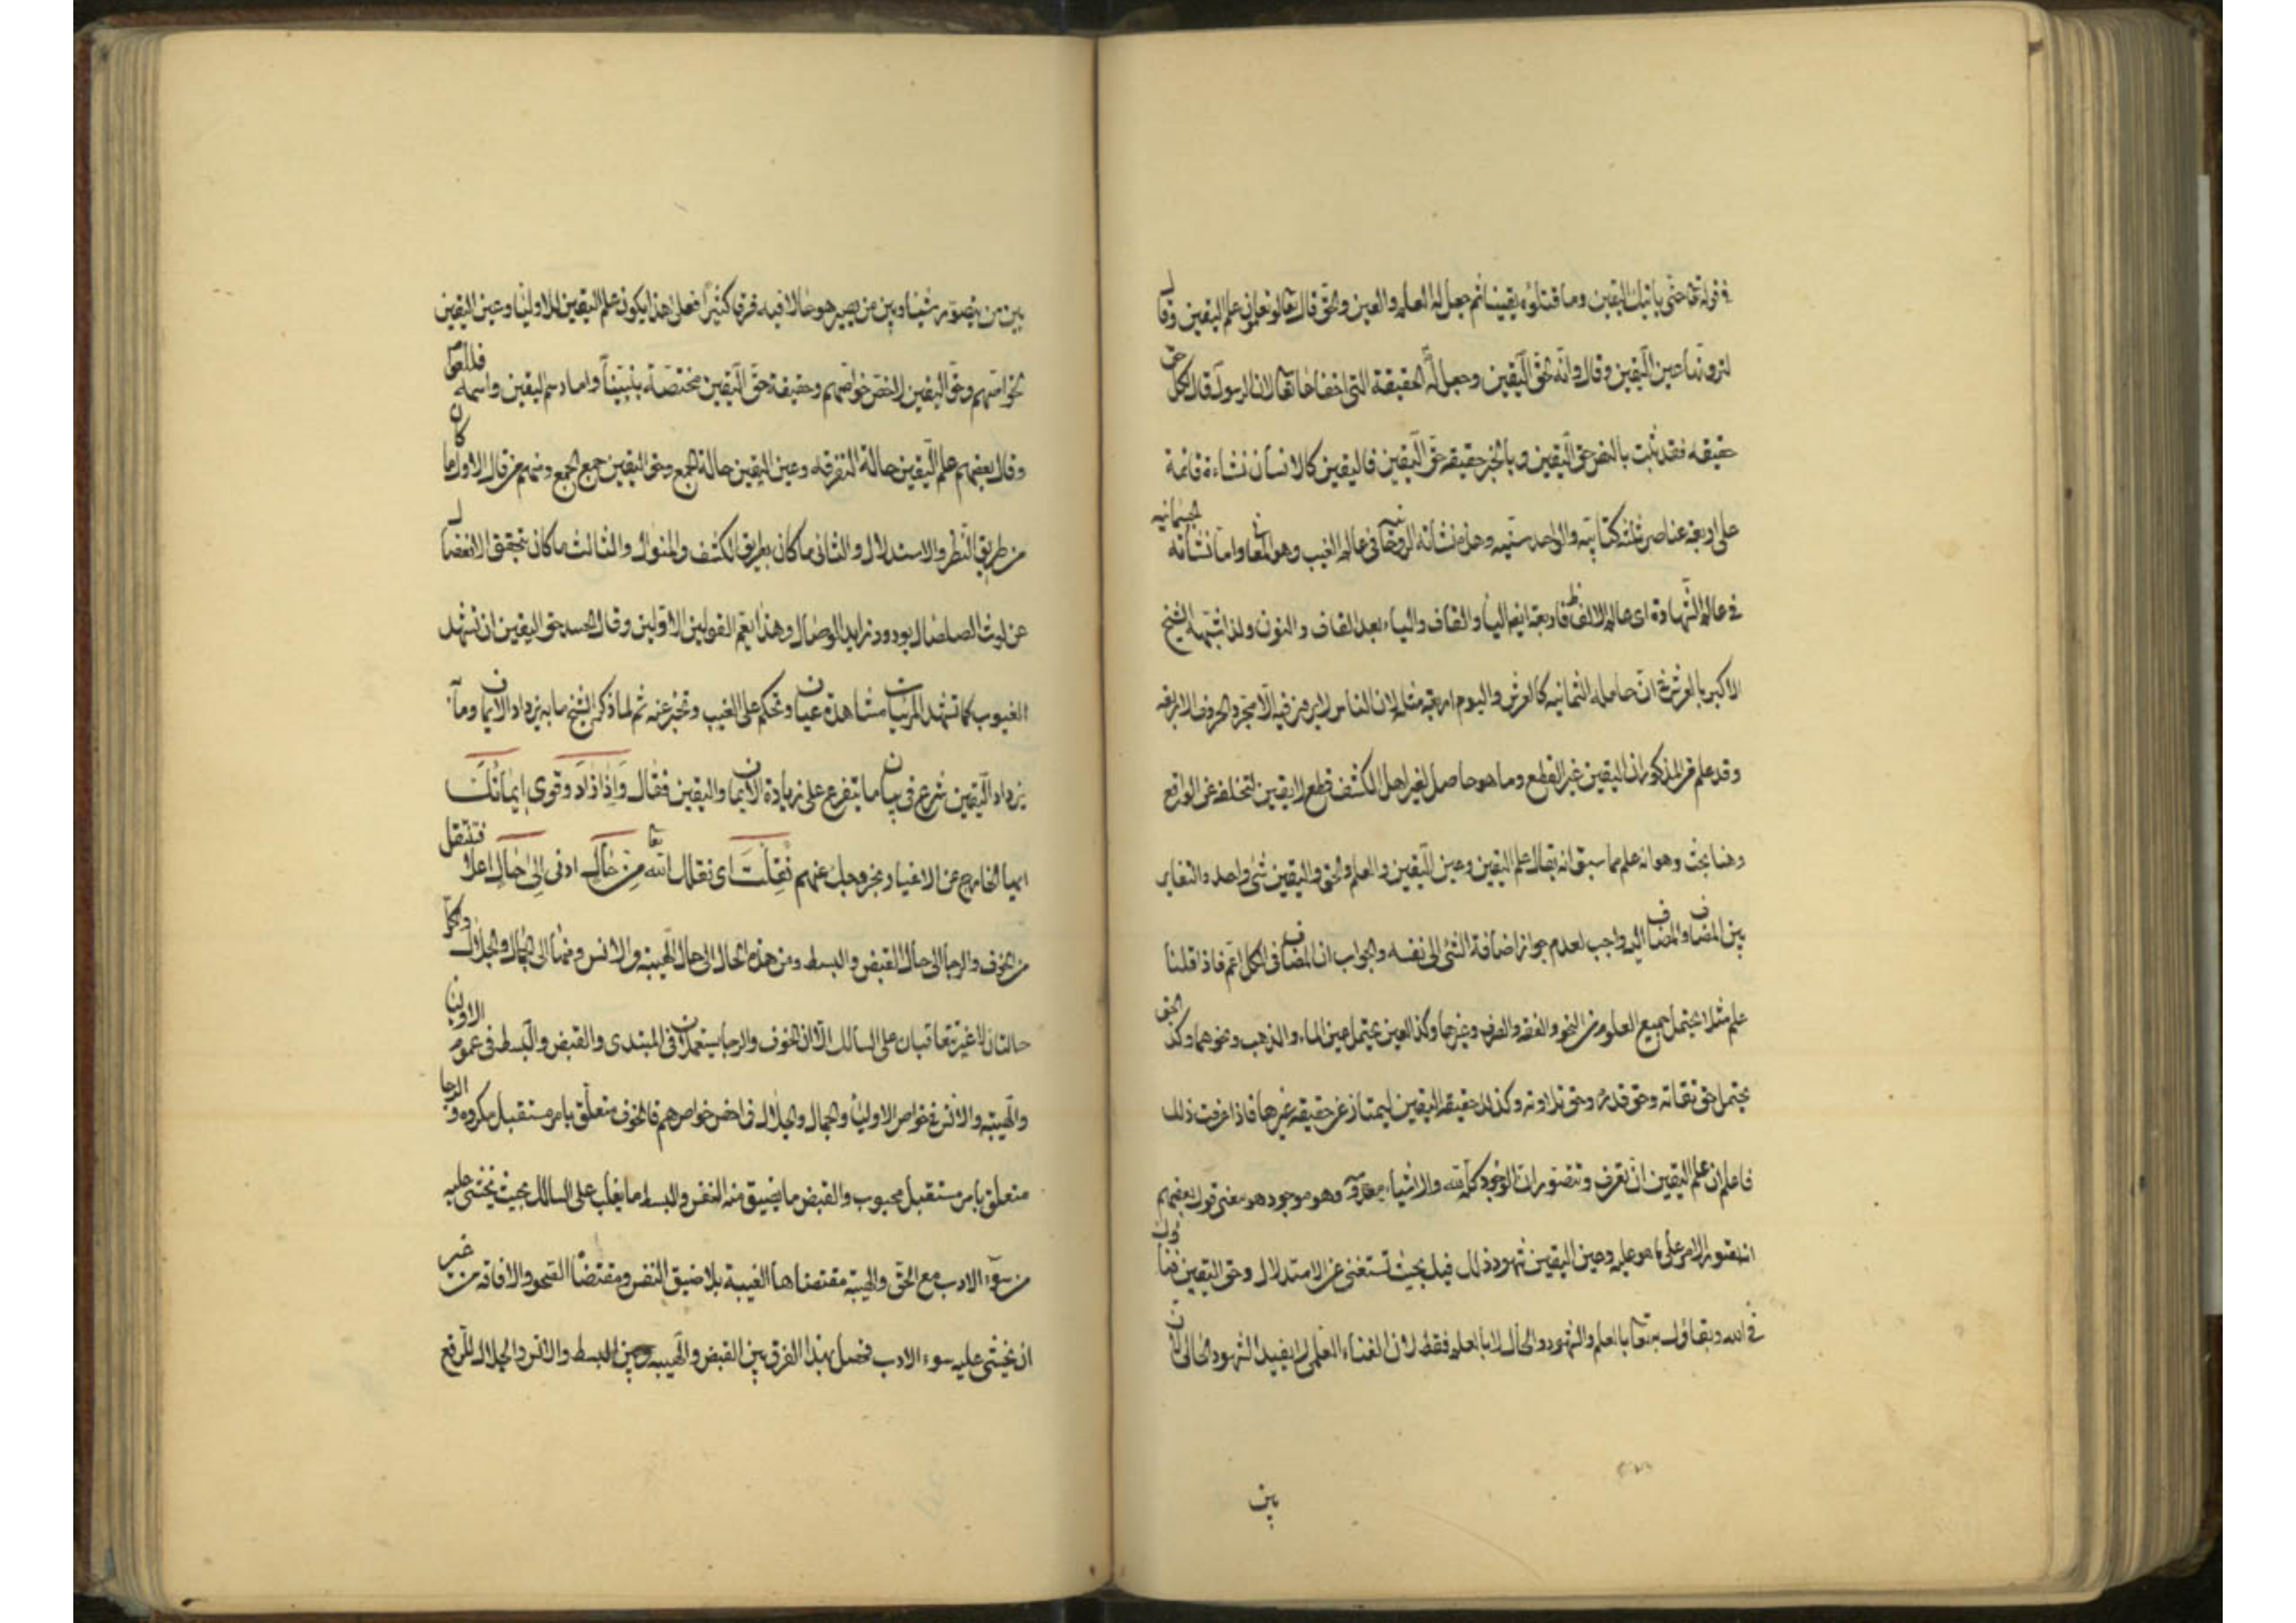 في قوله تعا حتى ياتيك اليقين وما قتلوه يقينا ثم جعل له العلم والعين والحق قال تعا لو تعلمون علم اليقين وقال
لترونها عين اليقين وقال وانه لحق اليقين وجعل له الحقيقة التي اخفاها تعا لان الرسول قال لكل حق
حقيقه فقد ثبت بالنص حق اليقين وبالخبر حقيقة حق اليقين فاليقين كالانسان نشاءة قائمة
على اربعة عناصر ثلثه كتابيه والواحد سنيه وهذه نشاته الروحانيه في عالم الغيب وهو المعاني واما نشاته الجسمانيه
في عالم الشهادة اي عالم الالفاظ فاربعة ايضا اليا والقاف والياء بعد القاف والنون ولذا شبهه الشيخ
الاكبر بالعرش في ان حامله الثمانيه كالعرش واليوم اربعة مثله لان الناس لا يرون فيه الا مجرد الحروف الاربعه
وقد علم من المذكور ان اليقين غير القطع وما هو حاصل لغير اهل الكشف قطع لا يقين لتخلفه عن الواقع
وهنا بحث وهو انه علم مما سبق انه يقال علم اليقين وعين اليقين والعلم والحق واليقين شئ واحد والتغاير
بين المضاف والمضاف اليه واجب لعدم جواز اضافة الشئ الى نفسه والجواب ان المضاف في الكل اعم فاذا قلنا
علم مثلا يحتمل جميع العلوم من النحو والفقه والصرف وغيرها وكذا العين يحتمل عين الماء والذهب ونحوهما وكذا الحق
يحتمل حق تقاته وحق قدره وحق تلاوته وكذلك حقيقة اليقين ليمتاز عن حقيقه غيرها فاذا عرفت ذلك
فاعلم ان علم اليقين ان تعرف وتتصور ان الوجود كله لله والاشياء معدومة وهو موجود هو معنى قول بعضهم
انه تصور الامر على ما هو عليه وعين اليقين شهود ذلك قيل بحيث تستغني عن الاستدلال وحق اليقين فناوك
في الله وبقاوك به تعا بالعلم والشهود والحال لا بالعلم فقط لان الفناء العلمي لا يفيد الشهود الحالي لان
بين
بين من يتصور شيئا وبين من يصير هو حالا فيه فرقا كثيرا فعلى هذا يكون علم اليقين للاوليا وعين اليقين
لخواصهم وحق اليقين لاخص خواصهم وحقيقة حق اليقين مختصة بنبينا واما رسم اليقين واسمه فللعوام
وقال بعضهم علم اليقين حالة التفرقه وعين اليقين حالة الجمع وحق اليقين جمع الجمع ومنهم من قال الاول ما كان
من طريق النظر والاستدلال والثاني ما كان بطريق الكشف والنوال والثالث ما كان بتحقق الانفصال
عن لوث الصلصال بورود زايد الوصال وهذا يعم القولين الاولين وقال الحسد حق اليقين ان تشهد
الغيوب كما تشهد المرئيات مشاهدة عيان وتحكم على الغيب وتخبر عنه ثم لما ذكر الشيخ ما به يزداد الايمان وما
يزداد اليقين شرع في بيان ما يتفرع على زيادة الايمان واليقين فقال وَاِذا زادَ وقوي ايمانُكَ
ايها الخارج عن الاغيار بخروجك عنهم نُقِلتَ اي نقلك الله تعا مِن حالٍ ادنى اِلى حالٍ اعلا فتنتقل
من الخوف والرجا الى حال القبض والبسط ومن هذه الحال الى حال الهيبة والانس ومنها الى الجمال والجلال والكل
حالتان لا غير تتعاقبان على السالك الا ان الخوف والرجا يستعملان في المبتدي والقبض والبسط في عموم الاولين
والهيبة والانس في خواص الاوليا والجمال والجلال في اخص خواصهم فالخوف متعلق بامر مستقبل مكروه والرجا
متعلق بامر مستقبل محبوب والقبض ما يضيق منه النفس والبسط ما يغلب على السالك بحيث يخشى عليه
من سوء الادب مع الحق والهيبة مقتضاها الغيبة بلا ضيق النفس ومقتضا الصحو والافاقه من غير
ان يخشى عليه سوء الادب فحصل بهذا الفرق بين القبض والهيبه وبين البسط والانس والجلال للرفع